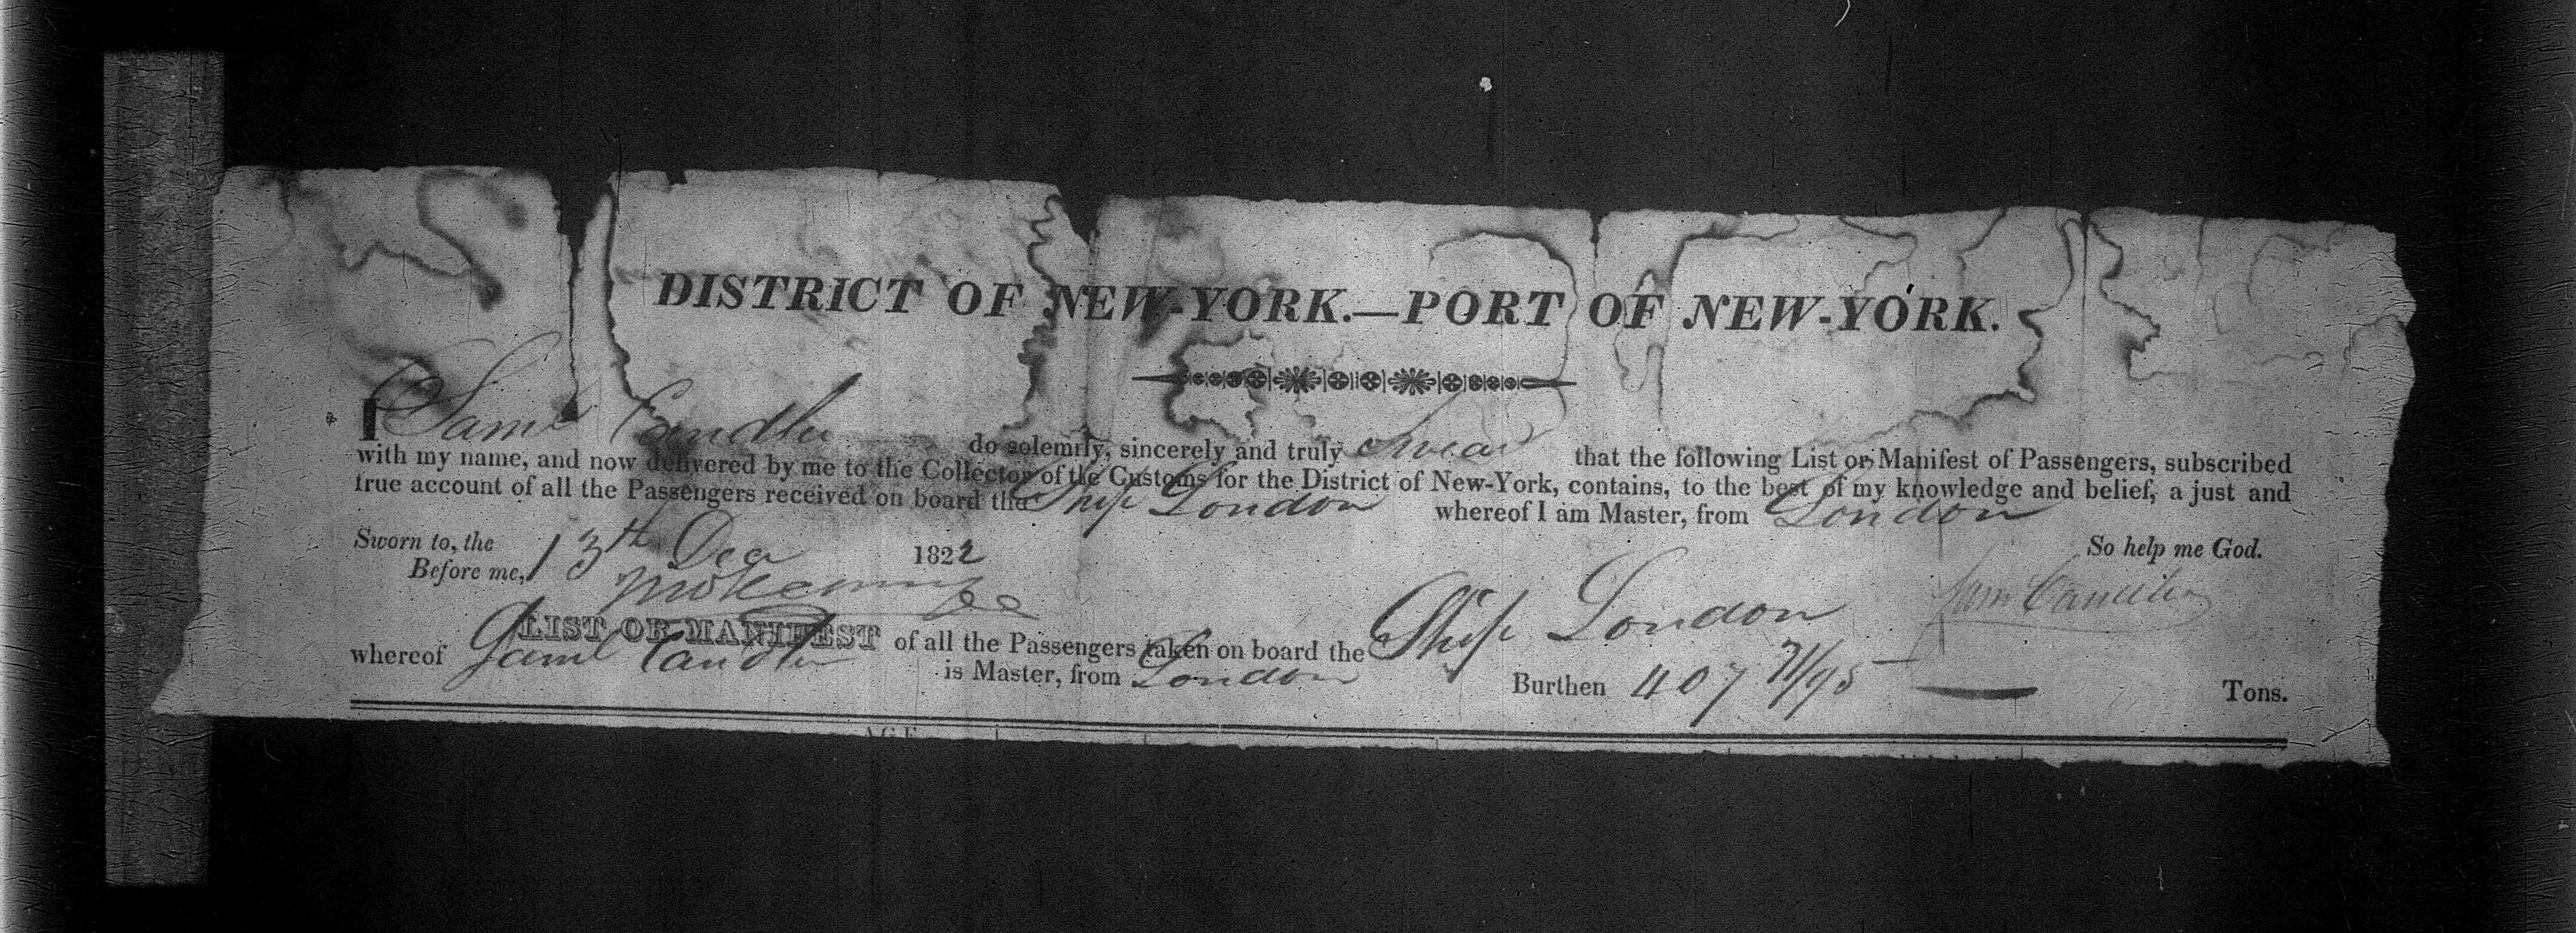 DISTRICT OF NEW-YORK.—PORT OF NEW-YORK.
I Saml Candler do solemnly, sincerely and truly swear that the following List or Manifest of Passengers, subscribed
with my name, and now delivered by me to the Collector of the Customs for the District of New-York, contains, to the best of my knowledge and belief, a just and
true account of all the Passengers received on board the Ship London whereof I am Master, from London
Sworn to, the 13th Dec 1822 So help me God.
Before me, Sam Candler
LIST OR MANIFEST of all the Passengers taken on board the Ship London
whereof Saml Candler is Master, from London Burthen 407 71/95 — Tons.
AGE